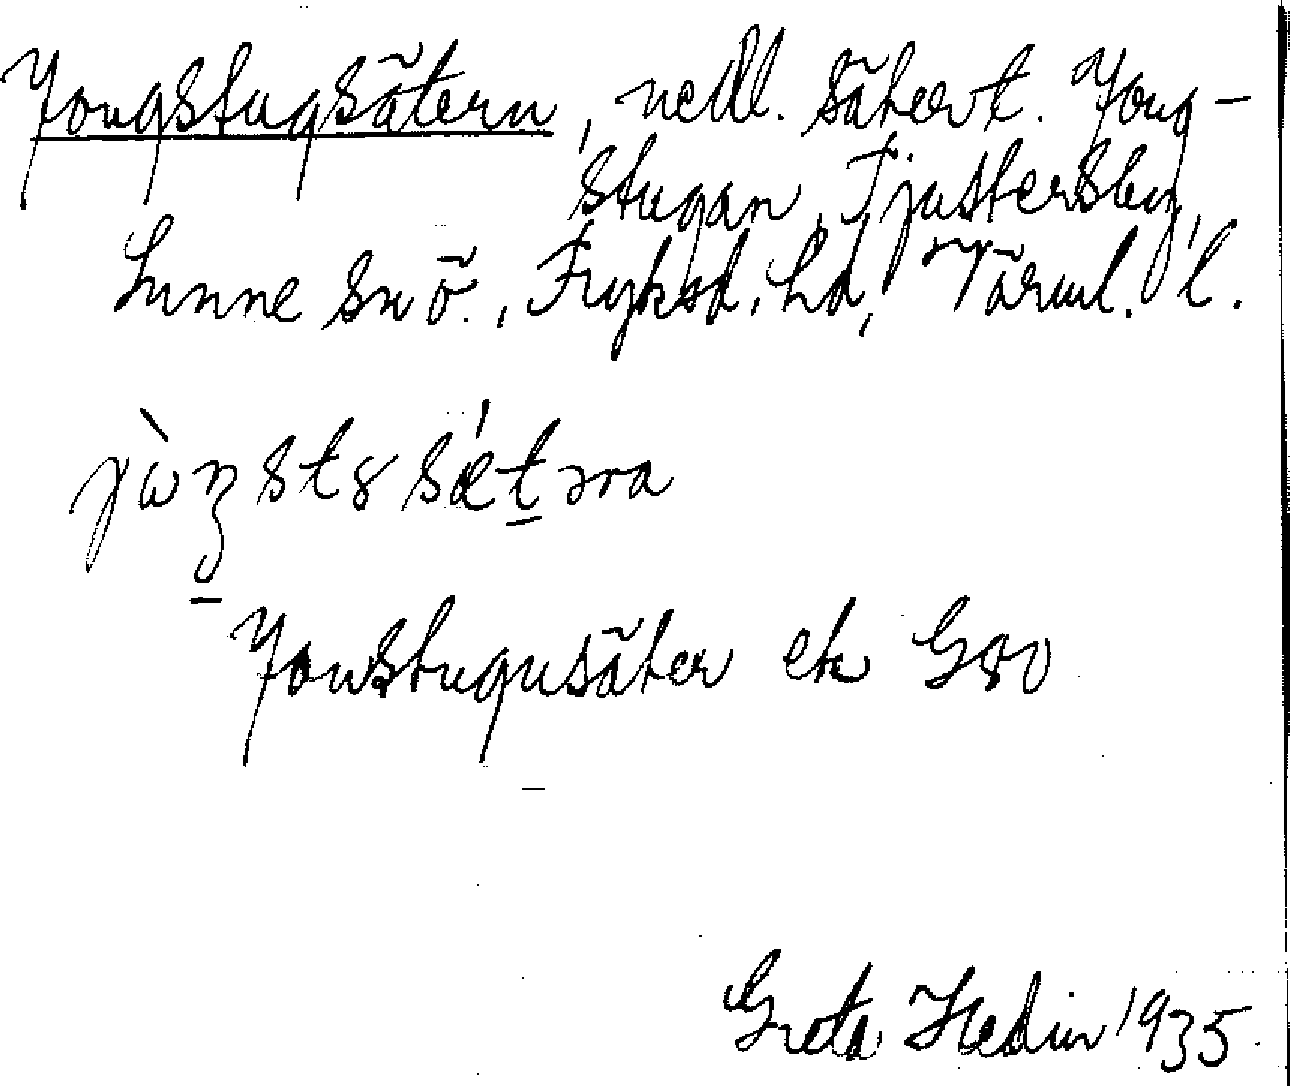 Jongstugsätern, nedl. sätert. Jong-
stugan, Tjustersby,
Sunne snö., Fryksd. hd, Värml. l.
Jonstugusäter ek G80
Greta Hedin 1935.